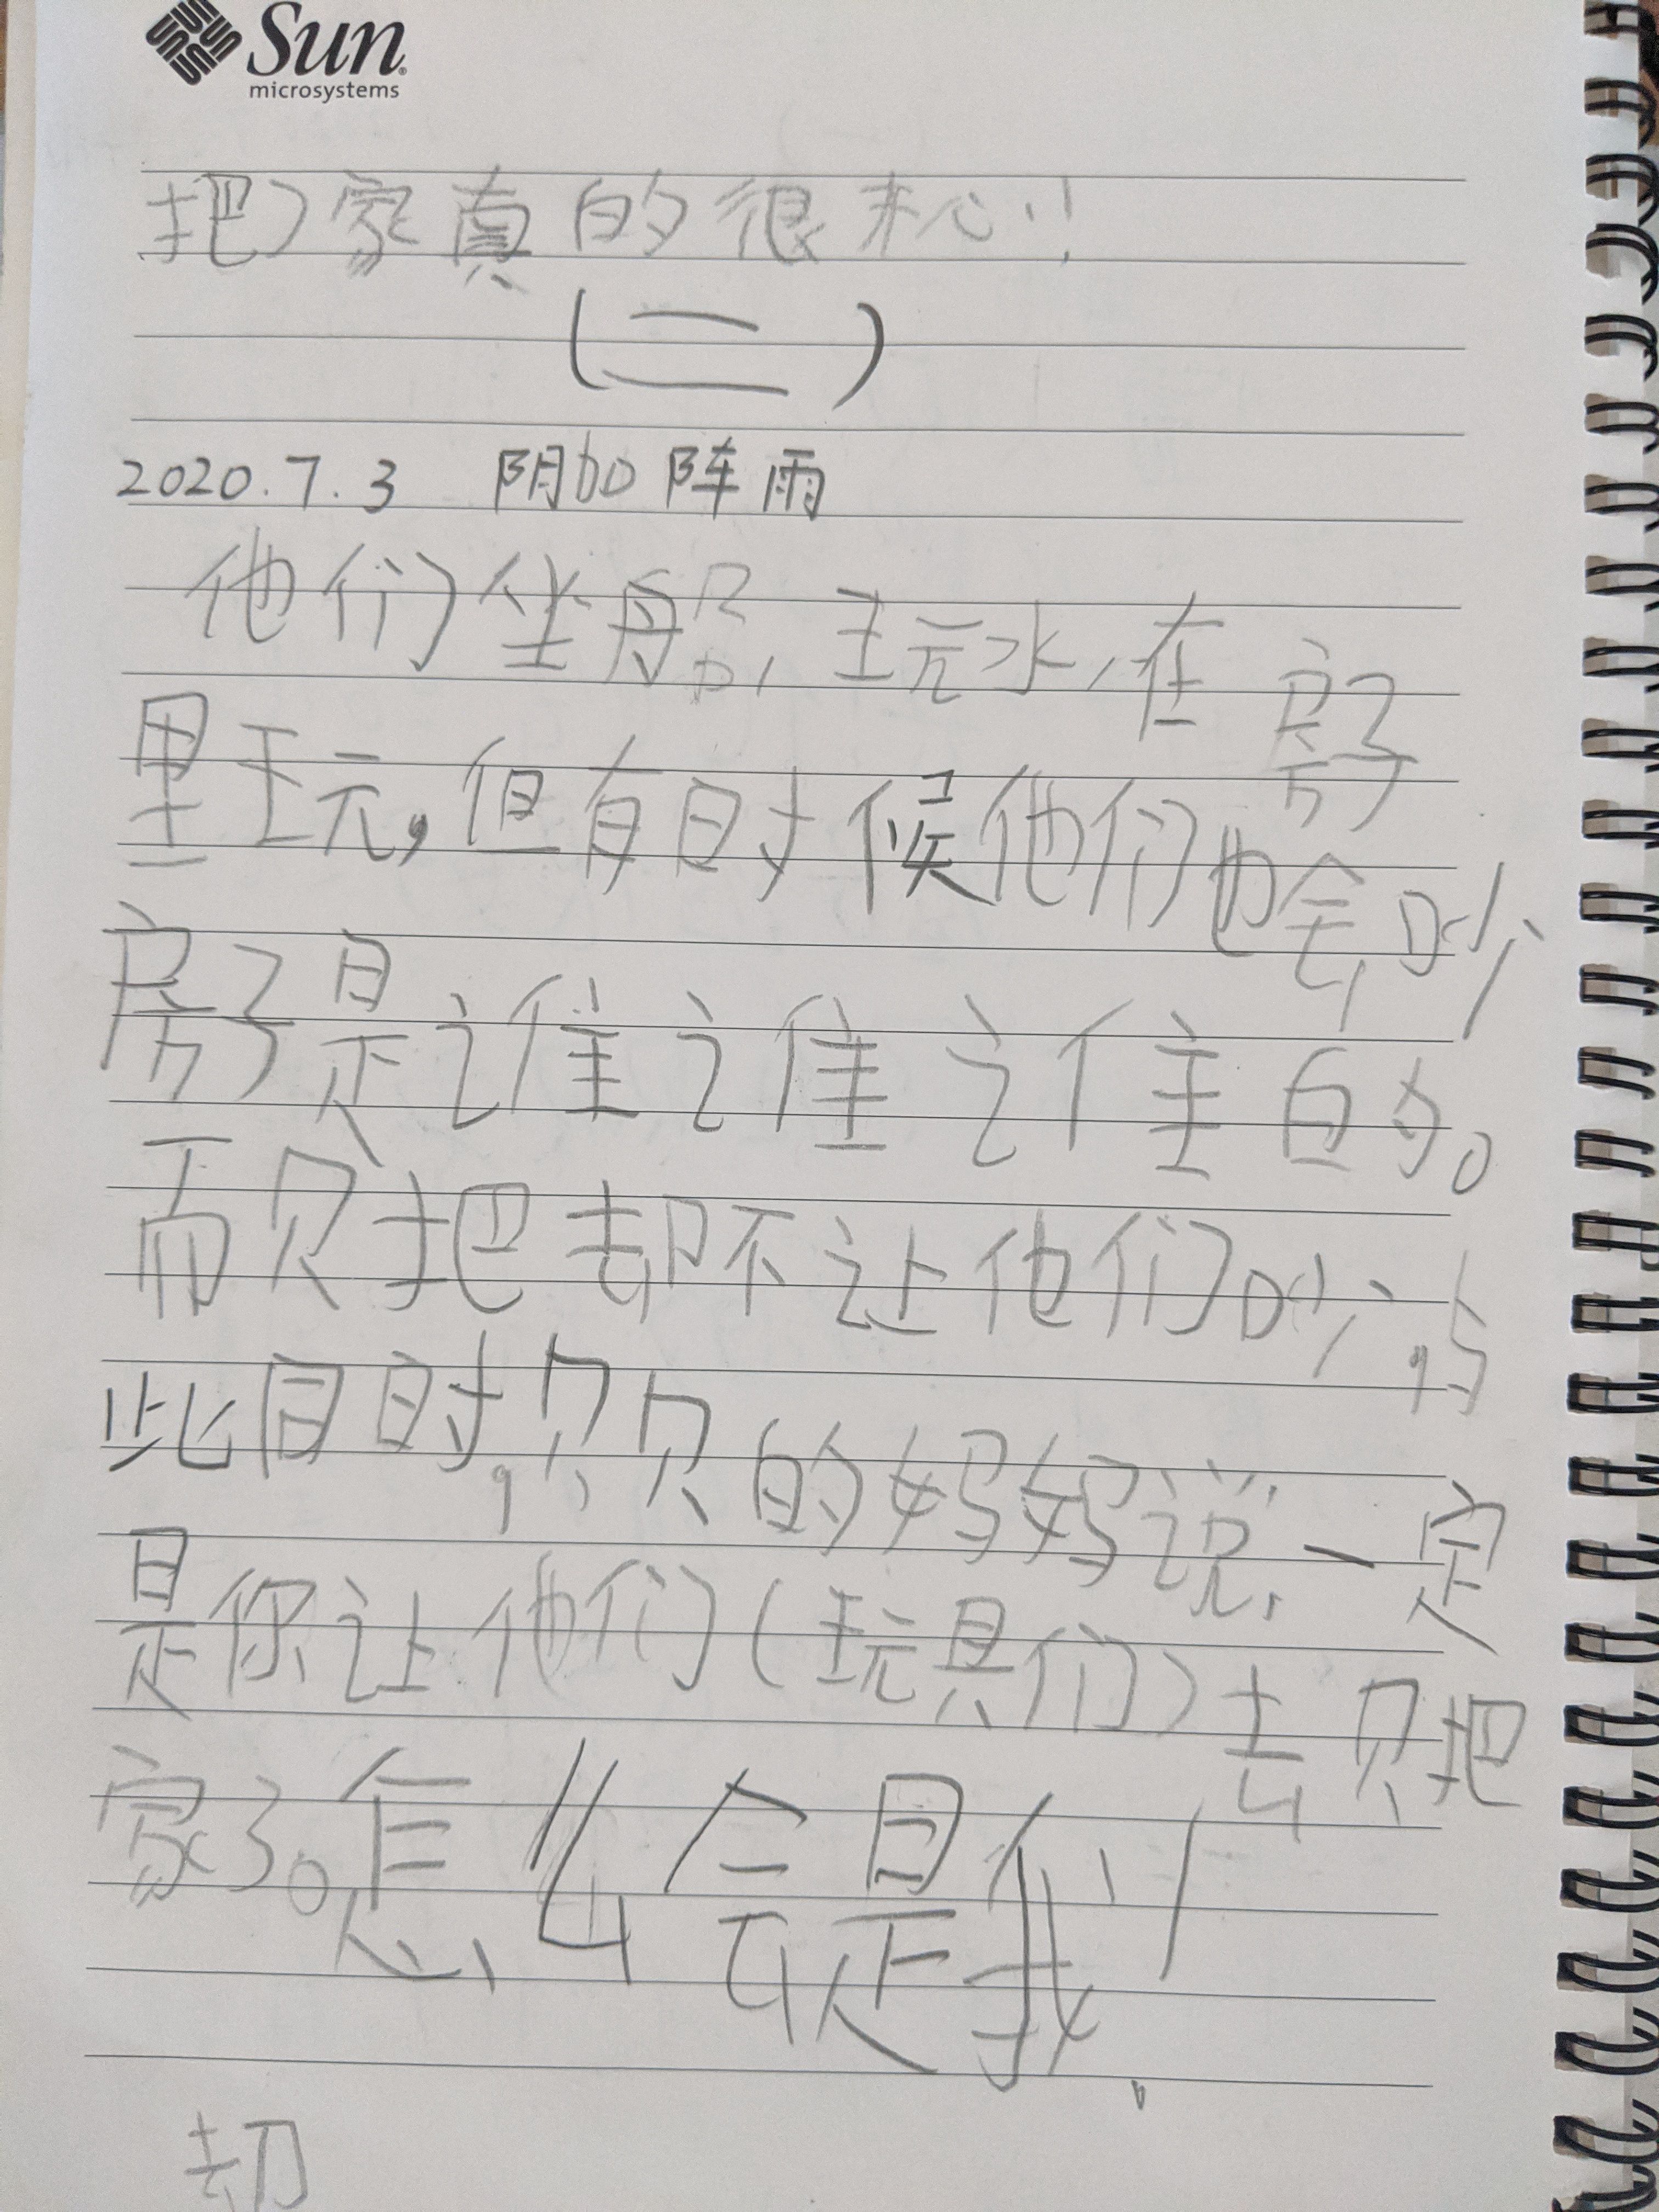 Sun
microsystems
把家真的很松!
(二)
2020.7.3 阴加阵雨
他们坐船,玩水,在房子
里玩,但有时候他们也会吵
房子是谁谁谁的。
而贝把却不让他们吵,与
此同时,贝贝的妈妈说,一定
是你让他们(玩具们)去贝把
家了。怎么会是我!
却